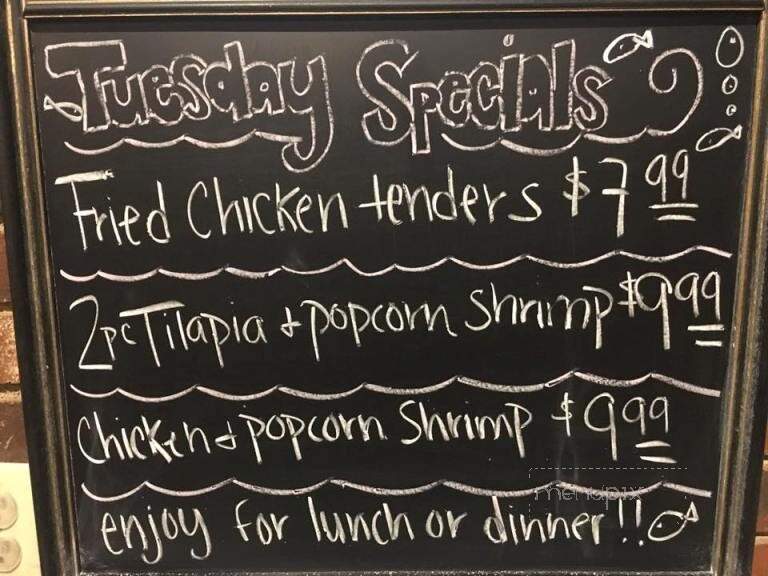 Tuesday Specials
Fried Chicken tenders $7.99
2pc Tilapia + popcorn shrimp $9.99
Chicken + popcorn Shrimp $9.99
enjoy for lunch or dinner!!
menupix